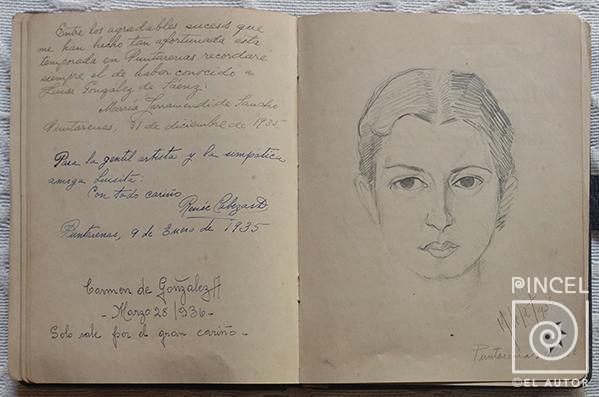 Entre los agradables sucesos que
me han hecho tan afortunada esta
temporada en Puntarenas recordaré
siempre el de haber conocido a
Luisa González de Sáenz.
María Larramendi de Sancho
Puntarenas, 31 de diciembre de 1935
Para la gentil artista y la simpática
amiga Luisita:
Con todo cariño
Renée Cabezas D
Puntarenas, 9 de Enero de 1935
Carmen de González A
- Marzo 28/936 -
Solo vale por el gran cariño -
Puntarenas
PINCEL
©EL AUTOR